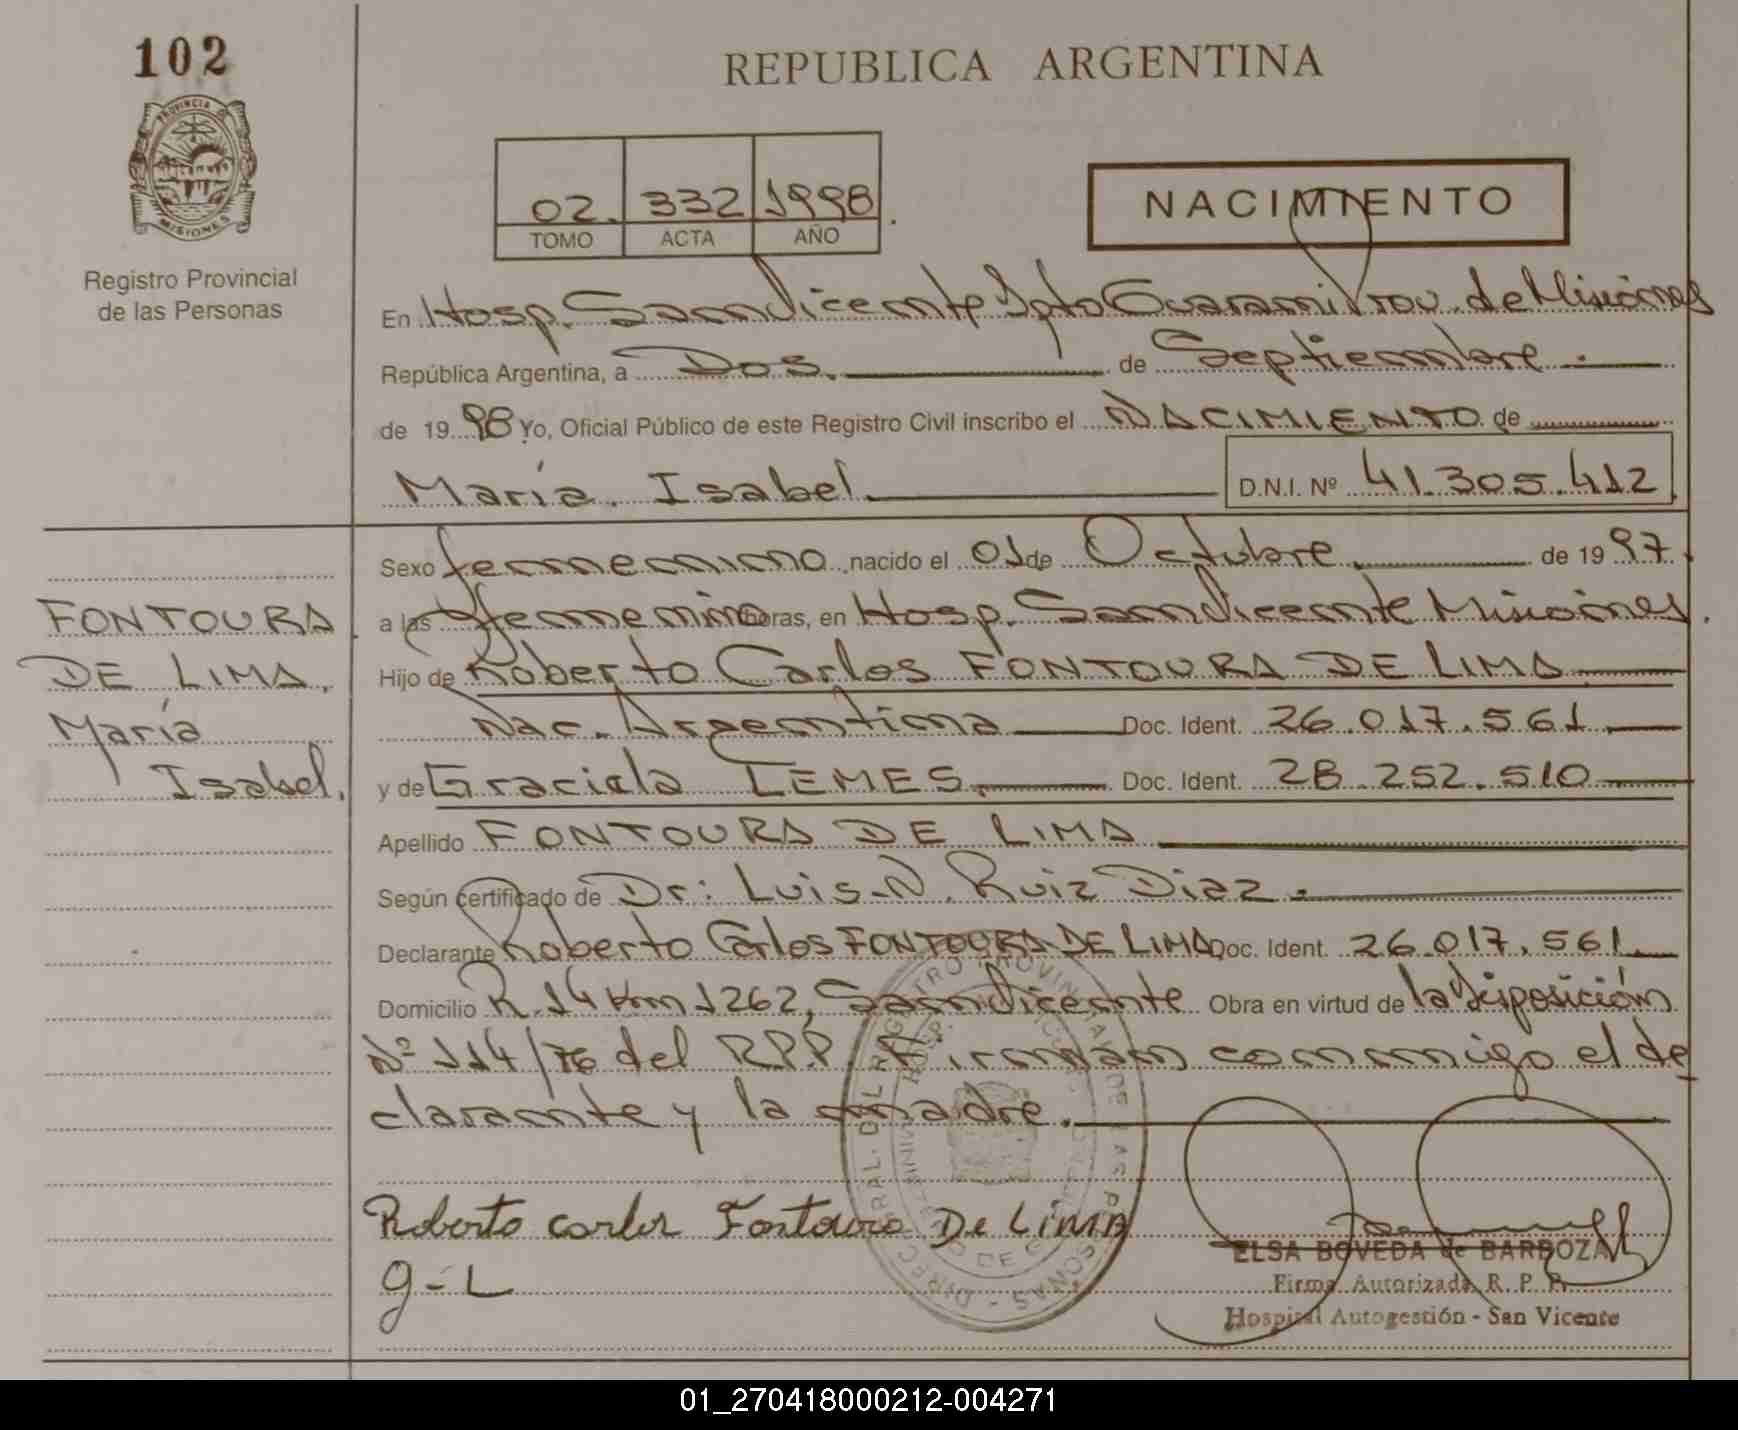 102
PROVINCIA DE
MISIONES
Registro Provincial
de las Personas
REPUBLICA ARGENTINA
02. 332 1998
TOMO ACTA AÑO
NACIMIENTO
En Hosp. San Vicente Dpto Guarani Prov. de Misiones
República Argentina, a Dos. de Septiembre.
de 19 98 Yo, Oficial Público de este Registro Civil inscribo el NACIMIENTO de
María Isabel D.N.I. Nº 41.305.412
Sexo femenino nacido el 01 de Octubre de 19 97.
a las femenino horas, en Hosp. San Vicente Misiones.
Hijo de Roberto Carlos FONTOURA DE LIMA
Nac. Argentina Doc. Ident. 26.017.561
y de Graciela LEMES Doc. Ident. 28.252.510
Apellido FONTOURA DE LIMA
Según certificado de Dr: Luis N. Ruiz Diaz.
Declarante Roberto Carlos FONTOURA DE LIMA Doc. Ident. 26.017.561
Domicilio R.14 Km 1262, San Vicente Obra en virtud de la Disposición
Nº 114/76 del R.P.P. Firman conmigo el de
clarante y la madre.
FONTOURA
DE LIMA,
María
Isabel.
Roberto carlos Fontoura De LiMA
g-L
ELSA BOVEDA de BARBOZA
Firma Autorizada R. P. P.
Hospital Autogestión - San Vicente
01_270418000212-004271